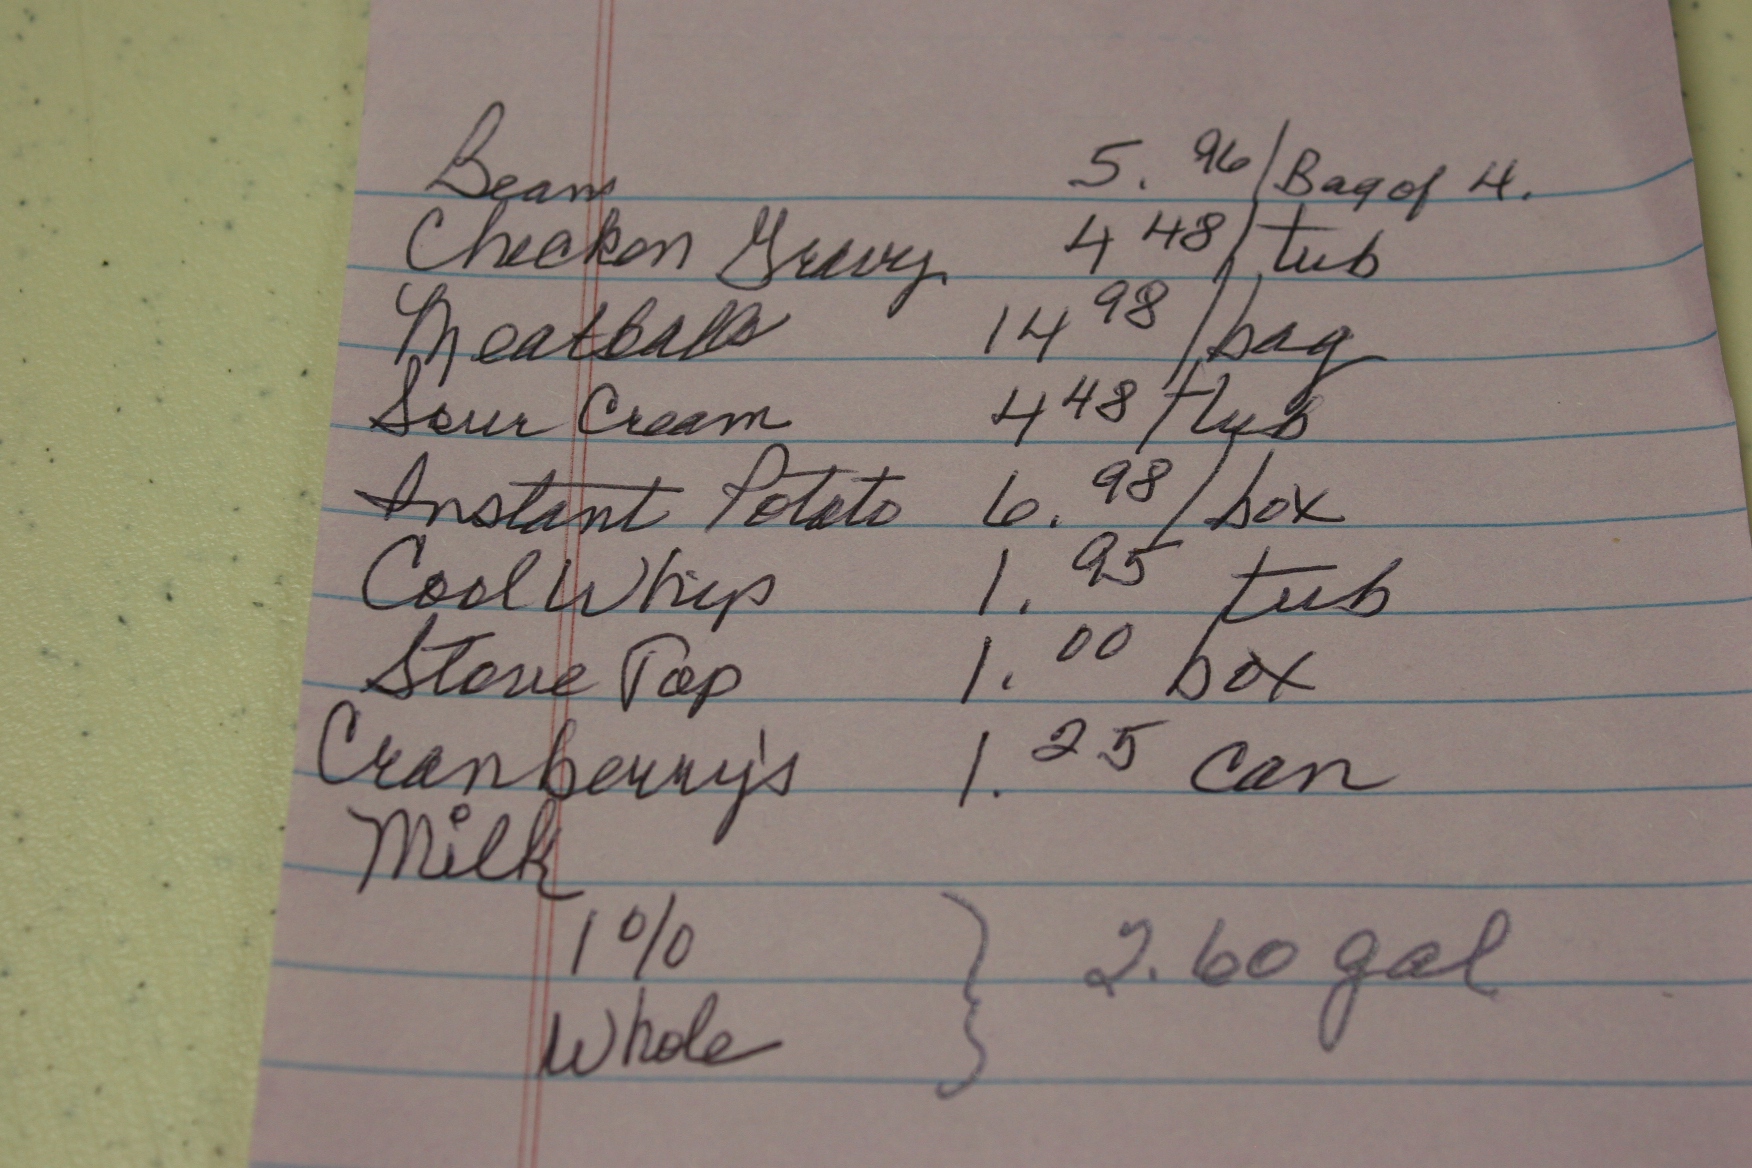 Beans 5.96/Bag of 4.
Chicken Gravy 4 48/tub
Meatballs 14 98/bag
Sour Cream 4 48/tub
Instant Potato 6.98/box
Cool Whip 1.95 tub
Stove Top 1.00 box
Cranberry's 1.25 can
Milk
1%
Whole } 2.60 gal